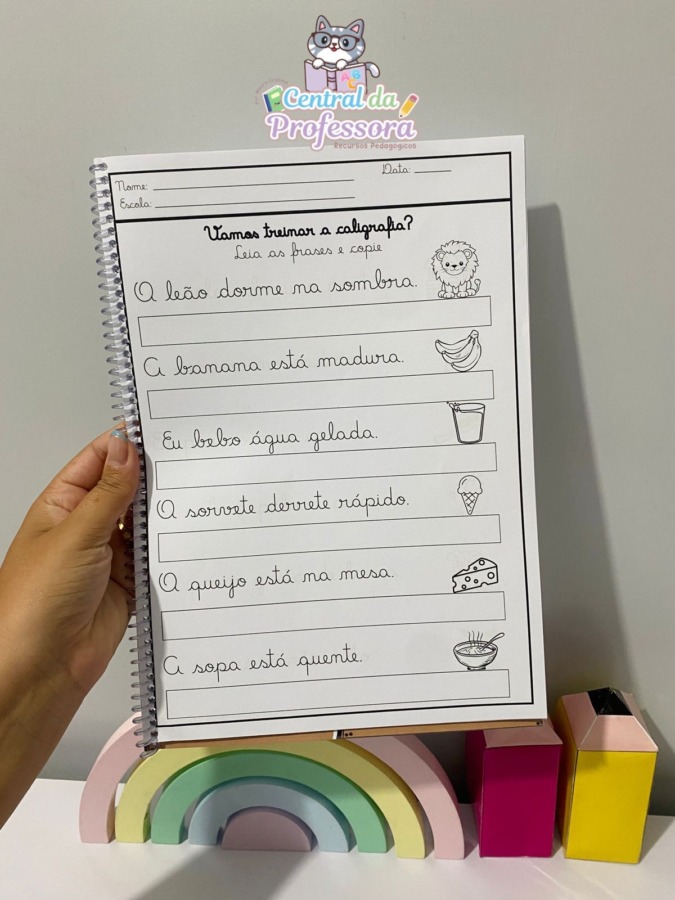 A B C
Central da
Professora
Recursos Pedagógicos
Nome:
Data:
Escola:
Vamos treinar a caligrafia?
Leia as frases e copie
O leão dorme na sombra.
A banana está madura.
Eu bebo água gelada.
O sorvete derrete rápido.
O queijo está na mesa.
A sopa está quente.